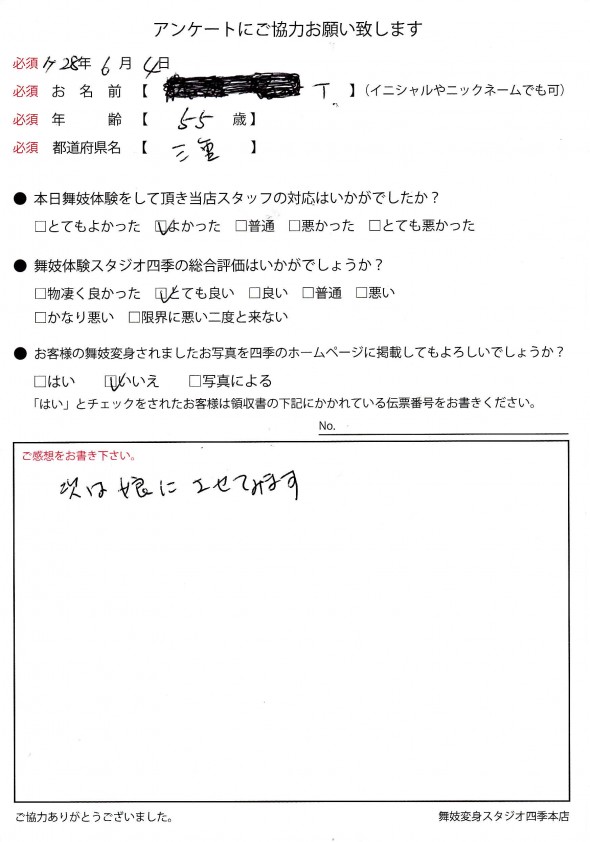 アンケートにご協力お願い致します
必須 28年 6月 4日
必須 お名前【 T. 】（イニシャルやニックネームでも可）
必須 年齢【 55 歳】
必須 都道府県名【 三重 】
● 本日舞妓体験をして頂き当店スタッフの対応はいかがでしたか？
□とてもよかった ☑よかった □普通 □悪かった □とても悪かった
● 舞妓体験スタジオ四季の総合評価はいかがでしょうか？
□物凄く良かった ☑とても良い □良い □普通 □悪い
□かなり悪い □限界に悪い二度と来ない
● お客様の舞妓変身されましたお写真を四季のホームページに掲載してもよろしいでしょうか？
□はい ☑いいえ □写真による
「はい」とチェックをされたお客様は領収書の下記にかかれている伝票番号をお書きください。
No.
ご感想をお書き下さい。
次は娘に させてみます
ご協力ありがとうございました。
舞妓変身スタジオ四季本店